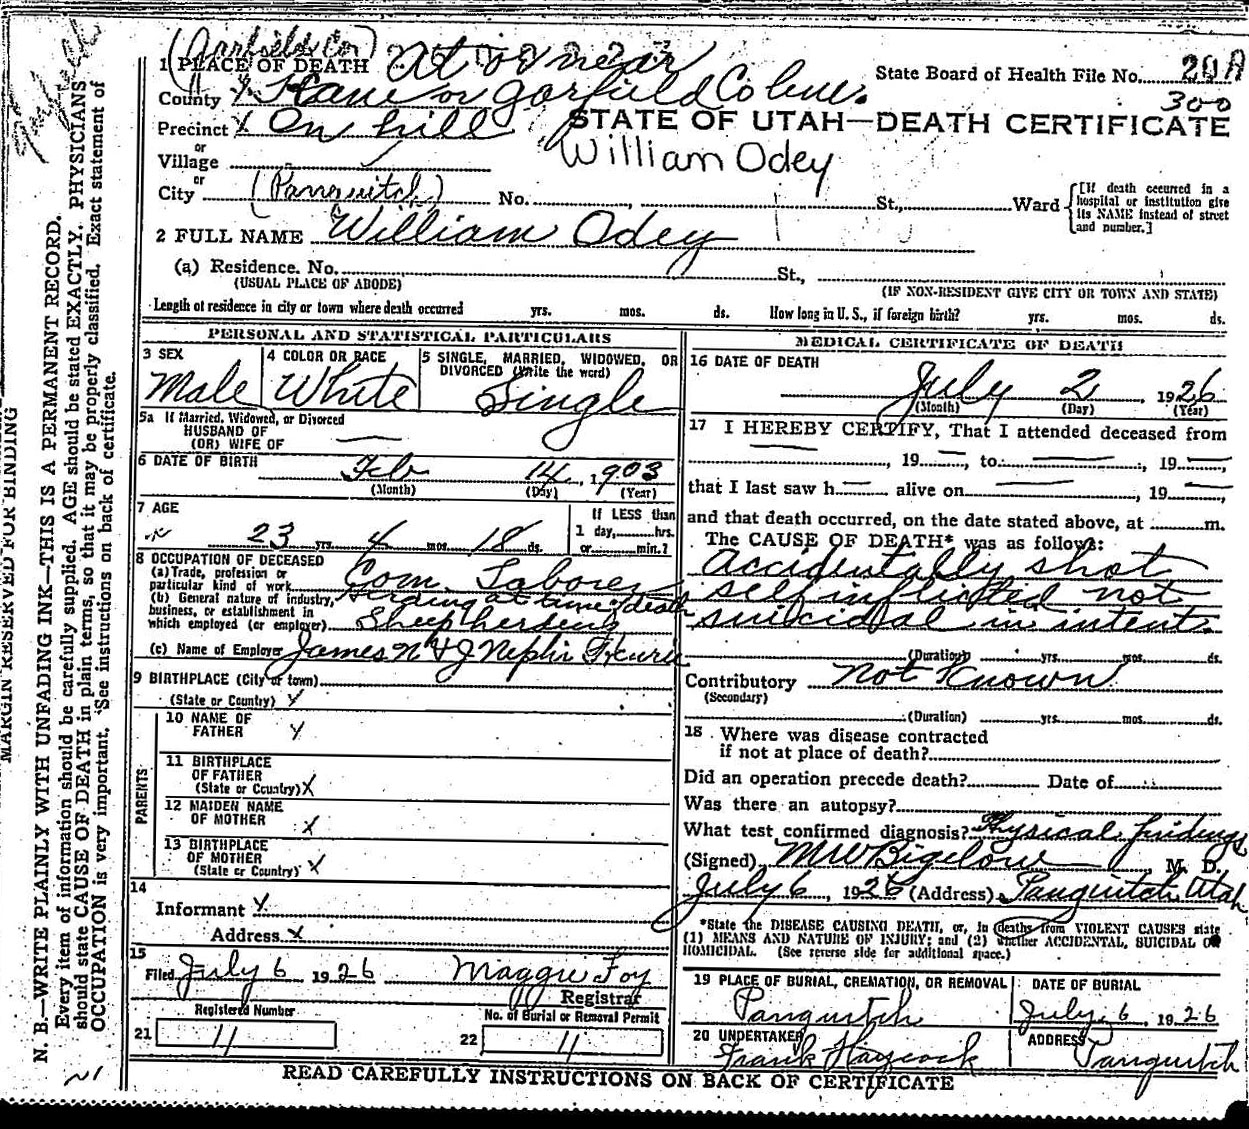 (Garfield Co)
1 PLACE OF DEATH At or near
State Board of Health File No. 20A
300
County Kane or Garfield Co line.
Precinct On hill
STATE OF UTAH—DEATH CERTIFICATE
William Odey
or
Village
or
City (Panguitch) No. , St., Ward
[If death occurred in a hospital or institution give its NAME instead of street and number.]
2 FULL NAME William Odey
(a) Residence. No. St.,
(USUAL PLACE OF ABODE) (IF NON-RESIDENT GIVE CITY OR TOWN AND STATE)
Length of residence in city or town where death occurred yrs. mos. ds. How long in U. S., if foreign birth? yrs. mos. ds.
PERSONAL AND STATISTICAL PARTICULARS
3 SEX
Male
4 COLOR OR RACE
White
5 SINGLE, MARRIED, WIDOWED, OR DIVORCED (Write the word)
Single
5a If Married, Widowed, or Divorced
HUSBAND OF
(OR) WIFE OF
6 DATE OF BIRTH
Feb 14, 1903
(Month) (Day) (Year)
7 AGE
23 yrs. 4 mos. 18 ds.
If LESS than
1 day, hrs.
or min.?
8 OCCUPATION OF DECEASED
(a) Trade, profession or
particular kind of work Com. Laborer
(b) General nature of industry, Herding at time of death
business, or establishment in
which employed (or employer) Sheepherding
(c) Name of Employer James N & J Nephi
9 BIRTHPLACE (City or town)
(State or Country) X
PARENTS
10 NAME OF
FATHER X
11 BIRTHPLACE
OF FATHER
(State or Country) X
12 MAIDEN NAME
OF MOTHER X
13 BIRTHPLACE
OF MOTHER
(State or Country) X
14
Informant X
Address X
15
Filed July 6 1926 Maggie Foy
Registrar
Registered Number
21 11
No. of Burial or Removal Permit
22 11
MEDICAL CERTIFICATE OF DEATH
16 DATE OF DEATH
July 2, 1926
(Month) (Day) (Year)
17 I HEREBY CERTIFY, That I attended deceased from
— , 19 — to — , 19 —,
that I last saw h — alive on — , 19 —
and that death occurred, on the date stated above, at m.
The CAUSE OF DEATH* was as follows:
Accidentally shot
self inflicted not
suicidal in intent.
(Duration) yrs. mos. ds.
Contributory Not Known
(Secondary)
(Duration) yrs. mos. ds.
18 Where was disease contracted
if not at place of death?
Did an operation precede death? Date of
Was there an autopsy?
What test confirmed diagnosis? Physical findings
(Signed) MW Bigelow M. D.
July 6, 1926 (Address) Panguitch, Utah
*State the DISEASE CAUSING DEATH, or, in deaths from VIOLENT CAUSES state
(1) MEANS AND NATURE OF INJURY; and (2) whether ACCIDENTAL, SUICIDAL OR
HOMICIDAL. (See reverse side for additional space.)
19 PLACE OF BURIAL, CREMATION, OR REMOVAL
Panguitch
DATE OF BURIAL
July 6, 1926
20 UNDERTAKER
Frank Haycock
ADDRESS
Panguitch
READ CAREFULLY INSTRUCTIONS ON BACK OF CERTIFICATE
MARGIN RESERVED FOR BINDING
N. B.—WRITE PLAINLY WITH UNFADING INK—THIS IS A PERMANENT RECORD.
Every item of information should be carefully supplied. AGE should be stated EXACTLY. PHYSICIANS
should state CAUSE OF DEATH in plain terms, so that it may be properly classified. Exact statement of
OCCUPATION is very important. See instructions on back of certificate.